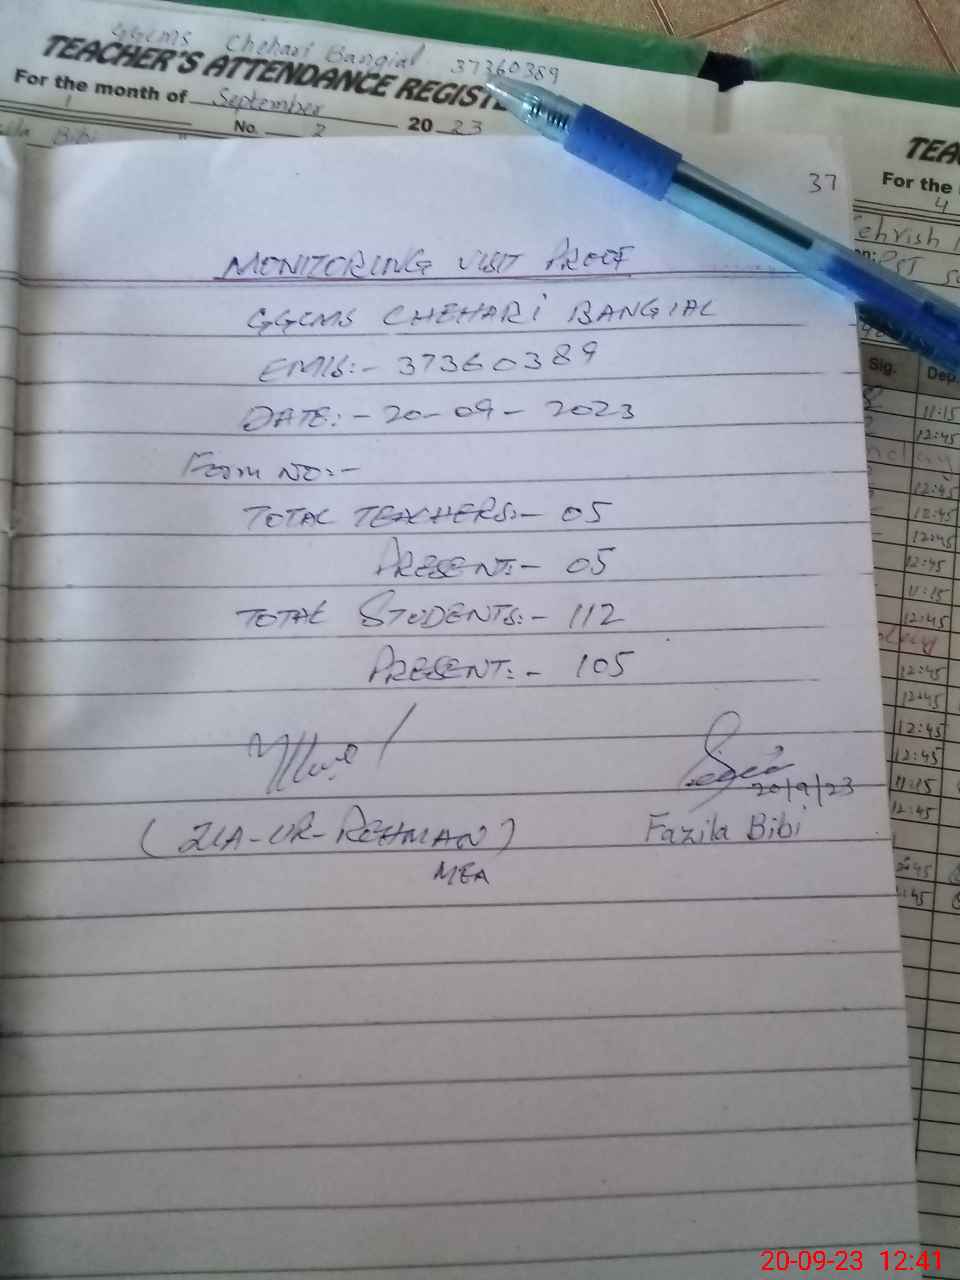 GGCMS Chehari Bangial 37360389
TEACHER'S ATTENDANCE REGISTE
For the month of September 2023
1
No. 2
Bibi
TEA
For the
4
ehrish
PST
Sig. Dep.
11:15
12:45
12:45
12:45
12:45
12:45
11:15
12:45
12:45
12:45
12:45
12:45
11:15
12:45
37
MONITORING VISIT PROOF
GGCMS CHEHARI BANGIAL
EMIS:- 37360389
DATE:- 20-09-2023
Form NO:-
TOTAL TEACHERS:- 05
PRESENT:- 05
TOTAL STUDENTS:- 112
PRESENT:- 105
20/9/23
(ZIA-UR-REHMAN)
Fazila Bibi
MEA
20-09-23 12:41